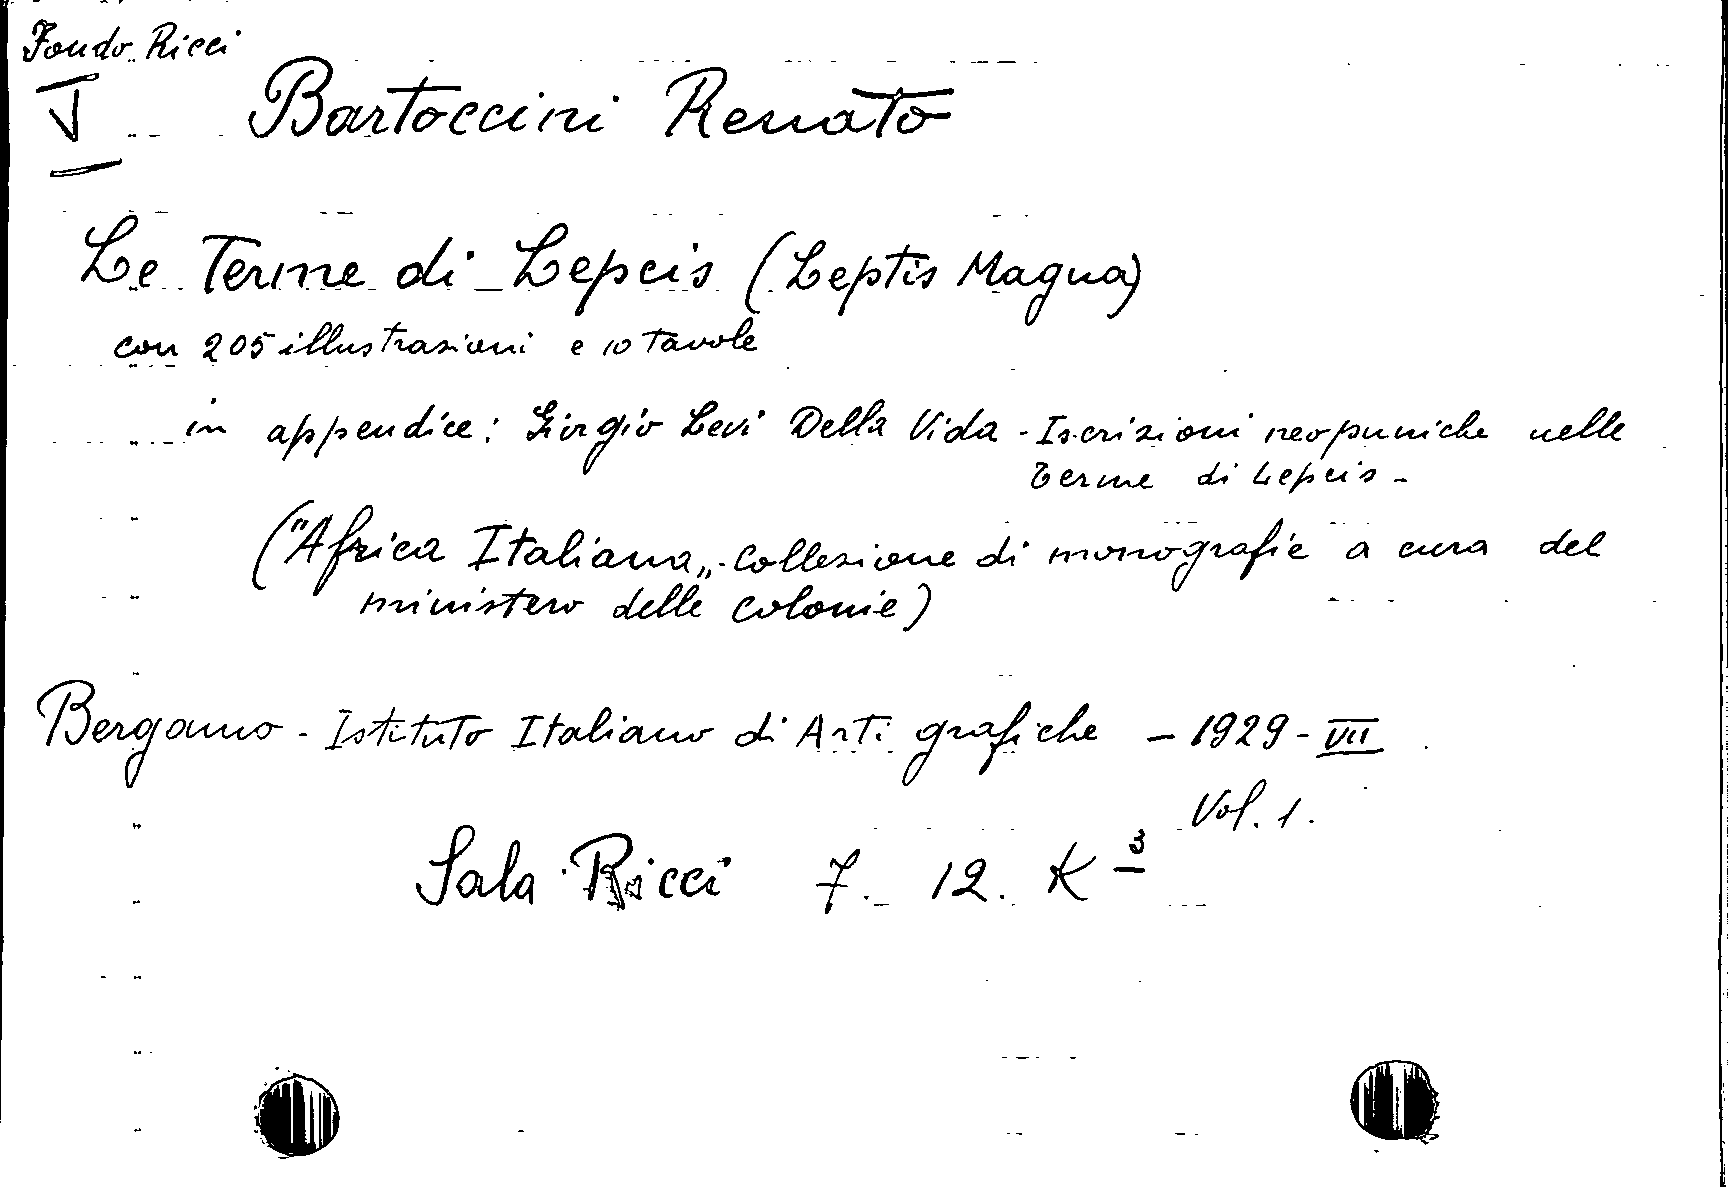 Fondo Ricci
V Bartoccini Renato
Le Terme di Lepcis (Leptis Magna)
con 205 illustrazioni e 10 tavole
in appendice: Giorgio Levi Della Vida - Iscrizioni neopuniche nelle
terme di Lepcis -
("Africa Italiana„ - Collezione di monografie a cura del
ministero delle colonie)
Bergamo - Istituto Italiano di Arti grafiche - 1929 - VII
Vol. 1.
Sala Ricci 7. 12. K 3